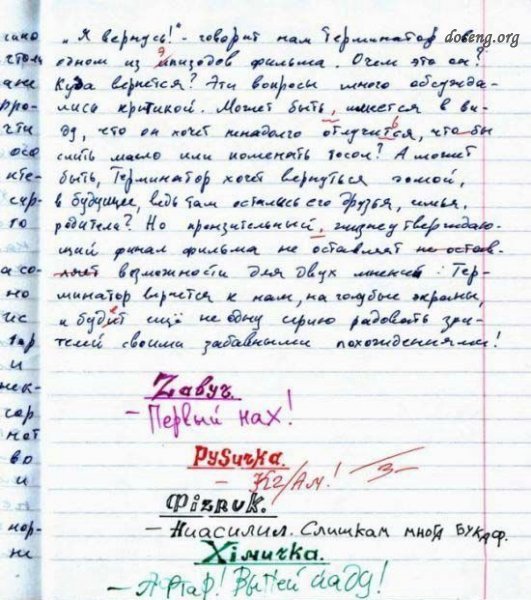 doseng.org
„Я вернусь!“ - говорит нам Терминатор в
одном из эпизодов фильма. О чем это он?
Куда вернется? Эти вопросы много обсужда-
лись критикой. Может быть, имеется в ви-
ду, что он хочет ненадолго отлучится, что бы
слить масло или поменять тосол? А может
быть, Терминатор хочет вернуться домой,
в будущее, ведь там остались его друзья, семья,
родители? Но пронзительный, жизнеутверждаю-
щий финал фильма не оставляет не остав-
ляет возможности для двух мнений: Тер-
минатор вернется к нам, на голубые экраны,
и будит ещё не одну серию радовать зри-
телей своими забавными похождениями!
Zавуч.
- Первый нах!
РуSичка.
- КГ/Ам! 3-
Фiзrик.
- Ниасилил. Слишкам многа букаф.
Хiмичка.
- Афтар! Выпей йаду!